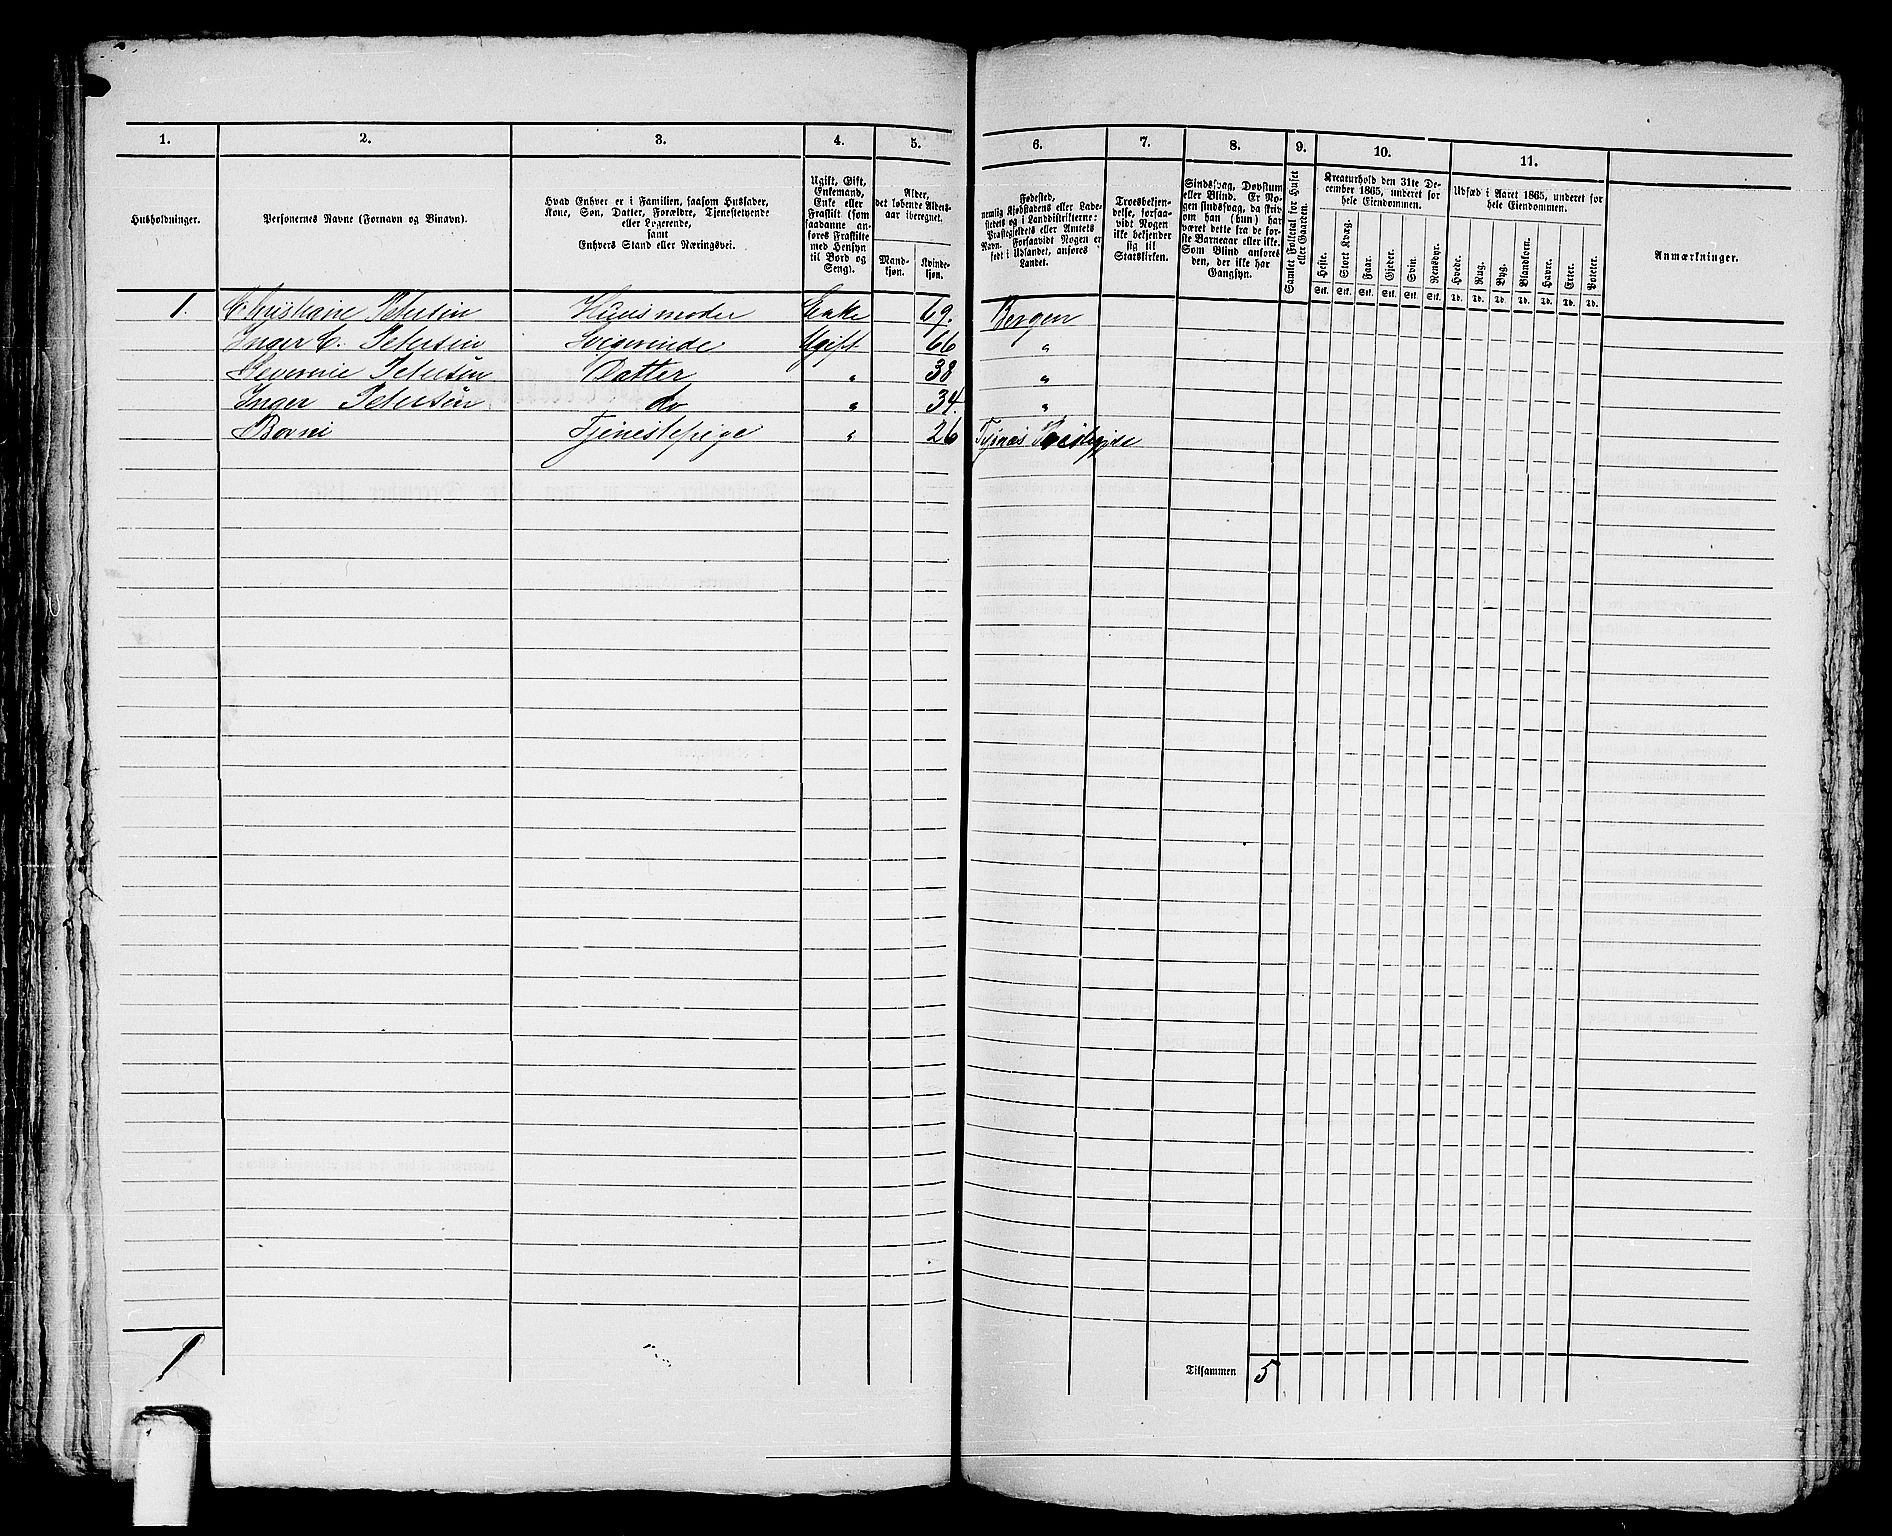 1. 2. 3. 4. 5. 6. 7. 8. 9. 10. 11.
Husholdninger.
Personernes Navne (Fornavn og Binavn).
Hvad Enhver er i Familien, saasom Husfader,
Kone, Søn, Datter, Forældre, Tjenestetyende
eller Logerende,
samt
Enhvers Stand eller Næringsvei.
Ugift, Gift,
Enkemand,
Enke eller
Fraskilt (som
saadanne an-
føres Fraskilte
med Hensyn
til Bord og
Seng).
Alder,
det løbende Alders-
aar iberegnet.
Mand-
kjøn.
Kvinde-
kjøn.
Fødested,
nemlig Kjøbstadens eller Lade-
stedets og i Landdistrikterne:
Præstegjeldets eller Amtets
Navn. Forsaavidt Nogen er
født i Udlandet, anføres
Landet.
Troesbekjen-
delse, forsaa-
vidt Nogen
ikke bekjender
sig til
Statskirken.
Sindssvag, Døvstum
eller Blind. Er No-
gen sindssvag, da skriv
om han (hun) har
været dette fra de før-
ste Barneaar eller ikke.
Som Blind anføres
den, der ikke har
Gangsyn.
Samlet Folketal for Huset
eller Gaarden.
Kreaturhold den 31te De-
cember 1865, underet for
hele Eiendommen.
Heste. Stort Kvæg. Faar. Gjeder. Svin. Rensdyr.
Stk. Stk. Stk. Stk. Stk. Stk.
Udsæd i Aaret 1865, underet for
hele Eiendommen.
Hvede. Rug. Byg. Blandkorn. Havre. Erter. Poteter.
Td. Td. Td. Td. Td. Td. Td.
Anmærkninger.
1. Christiane Petersen Huusmoder Enke 69. Bergen
Inger C. Petersen Svigerinde Ugift 66 "
Severine Petersen Datter " 38 "
Inger Petersen do " 34. "
Borni Tjenestepige " 26 Tysnæs Præstegjde
1
Tilsammen 5